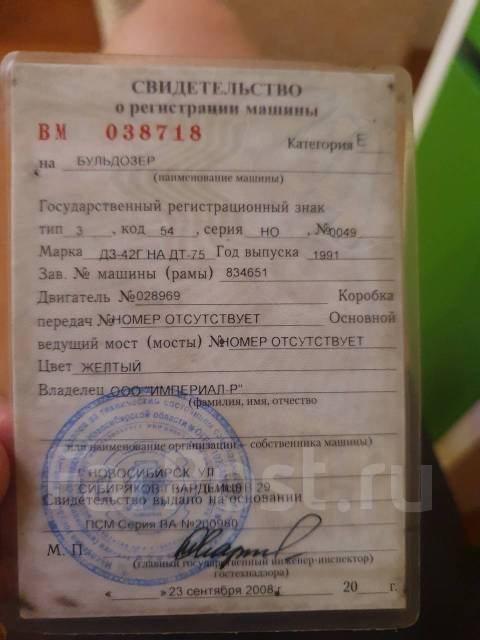 СВИДЕТЕЛЬСТВО
о регистрации машины
ВМ 038718
Категория Е
на БУЛЬДОЗЕР
(наименование машины)
Государственный регистрационный знак
тип 3 , код 54 , серия НО , №0049
Марка ДЗ-42Г НА ДТ-75 Год выпуска 1991
Зав. № машины (рамы) 834651
Двигатель №028969 Коробка
передач №НОМЕР ОТСУТСТВУЕТ Основной
ведущий мост (мосты) №НОМЕР ОТСУТСТВУЕТ
Цвет ЖЕЛТЫЙ
Владелец ООО "ИМПЕРИАЛ-Р"
(фамилия, имя, отчество
или наименование организации - собственника машины)
Г НОВОСИБИРСК УЛ
СИБИРЯКОВ ГВАРДЕЙЦЕВ 29
Свидетельство выдано на основании
ПСМ Серия ВА №200980
М. П.
(главный государственный инженер-инспектор)
гостехнадзора)
« » 23 сентября 2008 г 20 г.